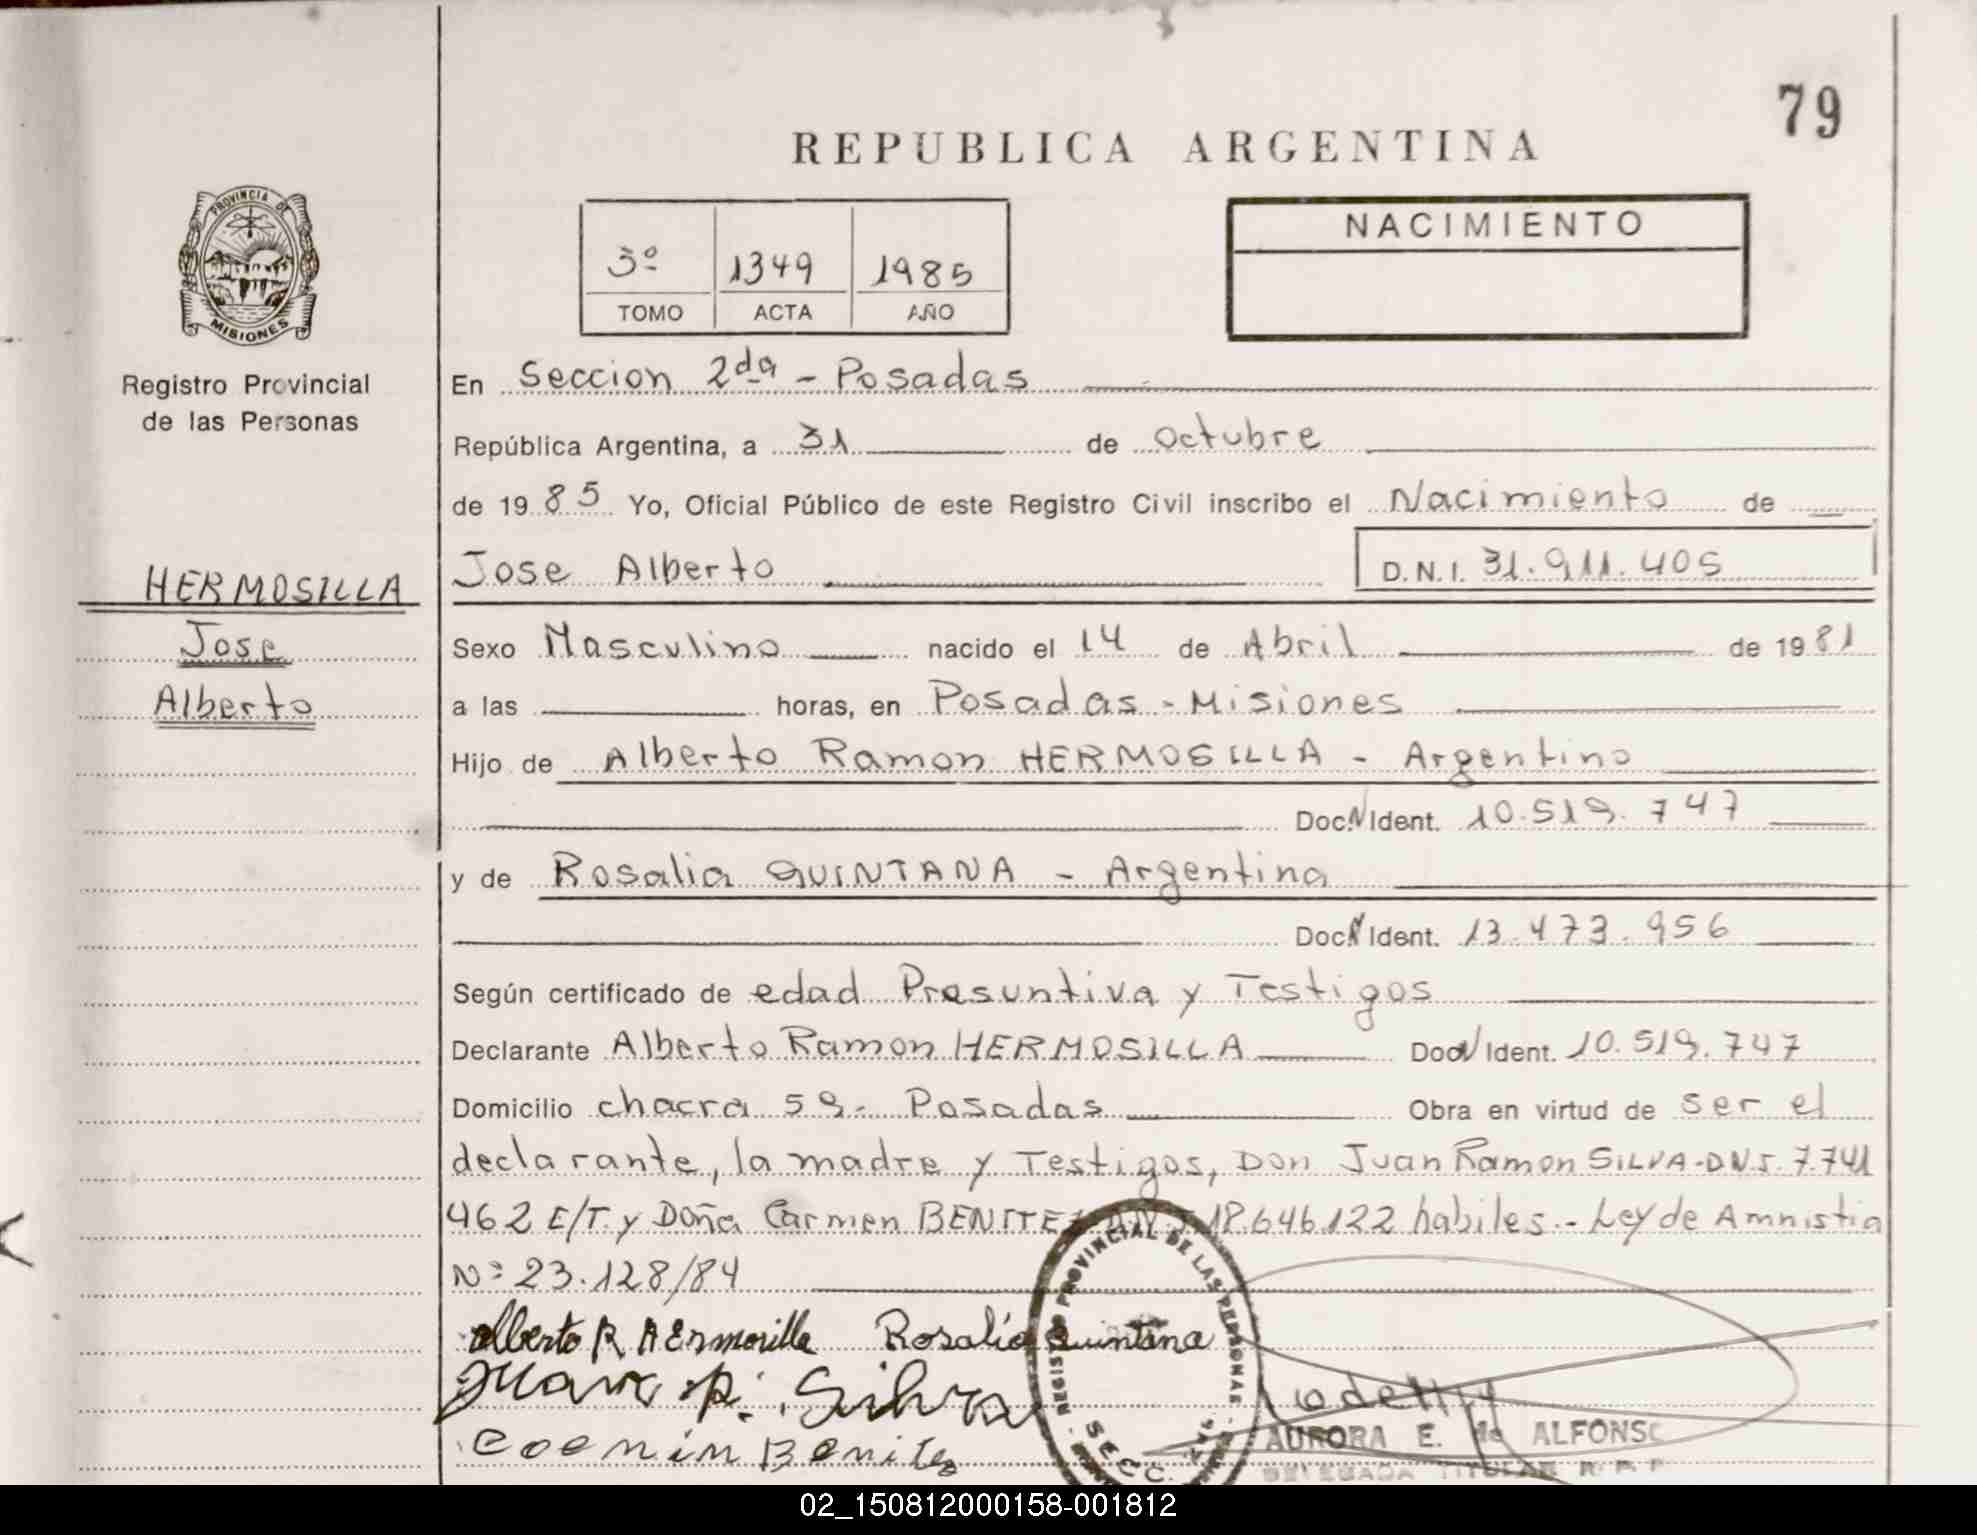 79
REPUBLICA ARGENTINA
PROVINCIA DE
MISIONES
Registro Provincial
de las Personas
3º 1349 1985
TOMO ACTA AÑO
NACIMIENTO
En Seccion 2da - Posadas
República Argentina, a 31 de Octubre
de 19 85 Yo, Oficial Público de este Registro Civil inscribo el Nacimiento de
HERMOSILLA
Jose
Alberto
Jose Alberto D.N.I. 31.911.405
Sexo Masculino nacido el 14 de Abril de 19 81
a las horas, en Posadas - Misiones
Hijo de Alberto Ramon HERMOSILLA - Argentino
Doc. N Ident. 10.519.747
y de Rosalia QUINTANA - Argentina
Doc. N Ident. 13.473.956
Según certificado de edad Presuntiva y Testigos
Declarante Alberto Ramon HERMOSILLA Doc. N Ident. 10.519.747
Domicilio chacra 59- Posadas Obra en virtud de ser el
declarante, la madre y Testigos, Don Juan Ramon SILVA-D.N.I. 7.741
462 E/T. y Doña Carmen BENITEZ D.N.I. 18.646.122 habiles.- Ley de Amnistia
Nº 23.128/84
Alberto R Hermosilla Rosalía Quintana
Juan R. Silva
REGISTRO PROVINCIAL DE LAS PERSONAS
SECC.
AURORA E. de ALFONSO
DELEGADA TITULAR R.P.P.
02_150812000158-001812